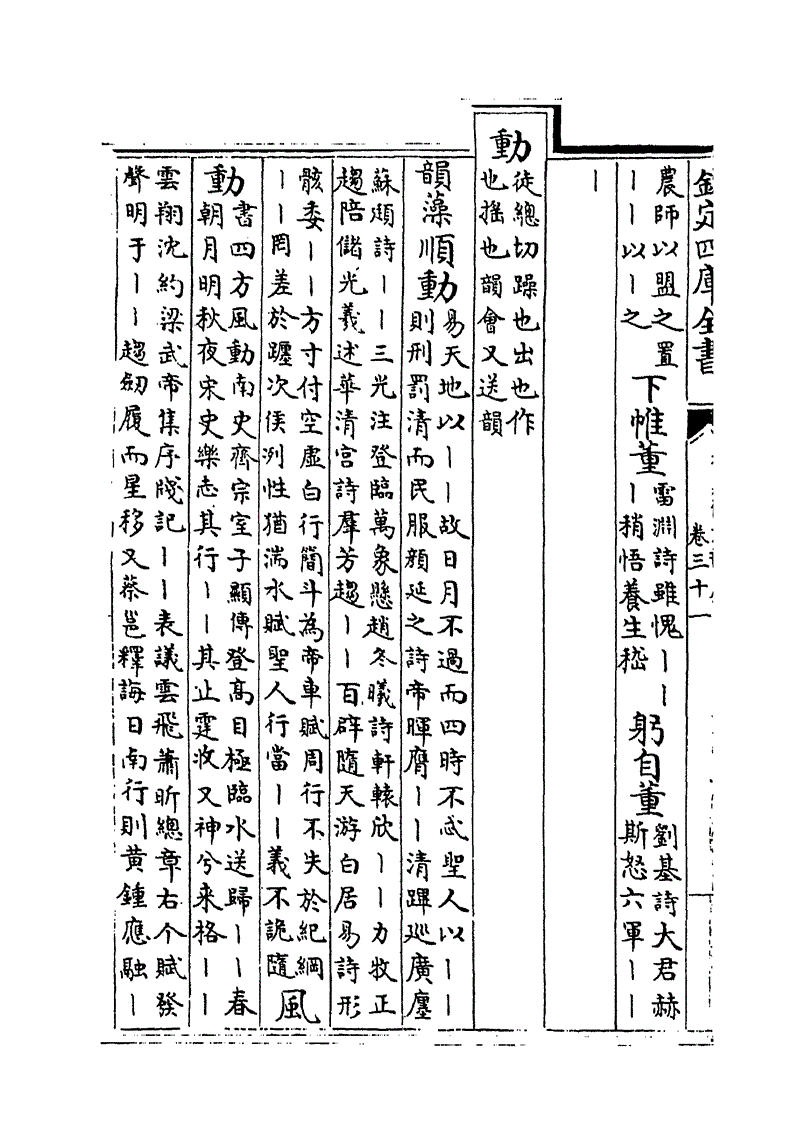 欽定四庫全書
卷三十一
農師以盟之置
丨丨以丨之
下帷董
雷淵詩雖愧丨丨
丨稍悟養生嵇
躬自董
劉基詩大君赫
斯怒六軍丨丨
丨
動
徒總切躁也出也作
也揺也韻㑹又送韻
韻藻順動
易天地以丨丨故日月不過而四時不忒聖人以丨丨
則刑罰清而民服顔延之詩帝暉膺丨丨清蹕巡廣廛
蘇頲詩丨丨三光注登臨萬象懸趙冬曦詩軒轅欣丨丨力牧正
趨陪儲光羲述華清宫詩羣芳趨丨丨百辟隨天游白居易詩形
骸委丨丨方寸付空虛白行簡斗為帝車賦周行不失於紀綱
丨丨罔差於躔次侯冽性猶湍水賦聖人行當丨丨義不詭隨
風
動
書四方風動南史齊宗室子顯傳登髙目極臨水送歸丨丨春
朝月明秋夜宋史樂志其行丨丨其止霆收又神兮来格丨丨
雲翔沈約梁武帝集序牋記丨丨表議雲飛蕭昕總章右个賦發
聲明于丨丨趨劒履而星移又蔡邕釋誨日南行則黄鍾應融丨